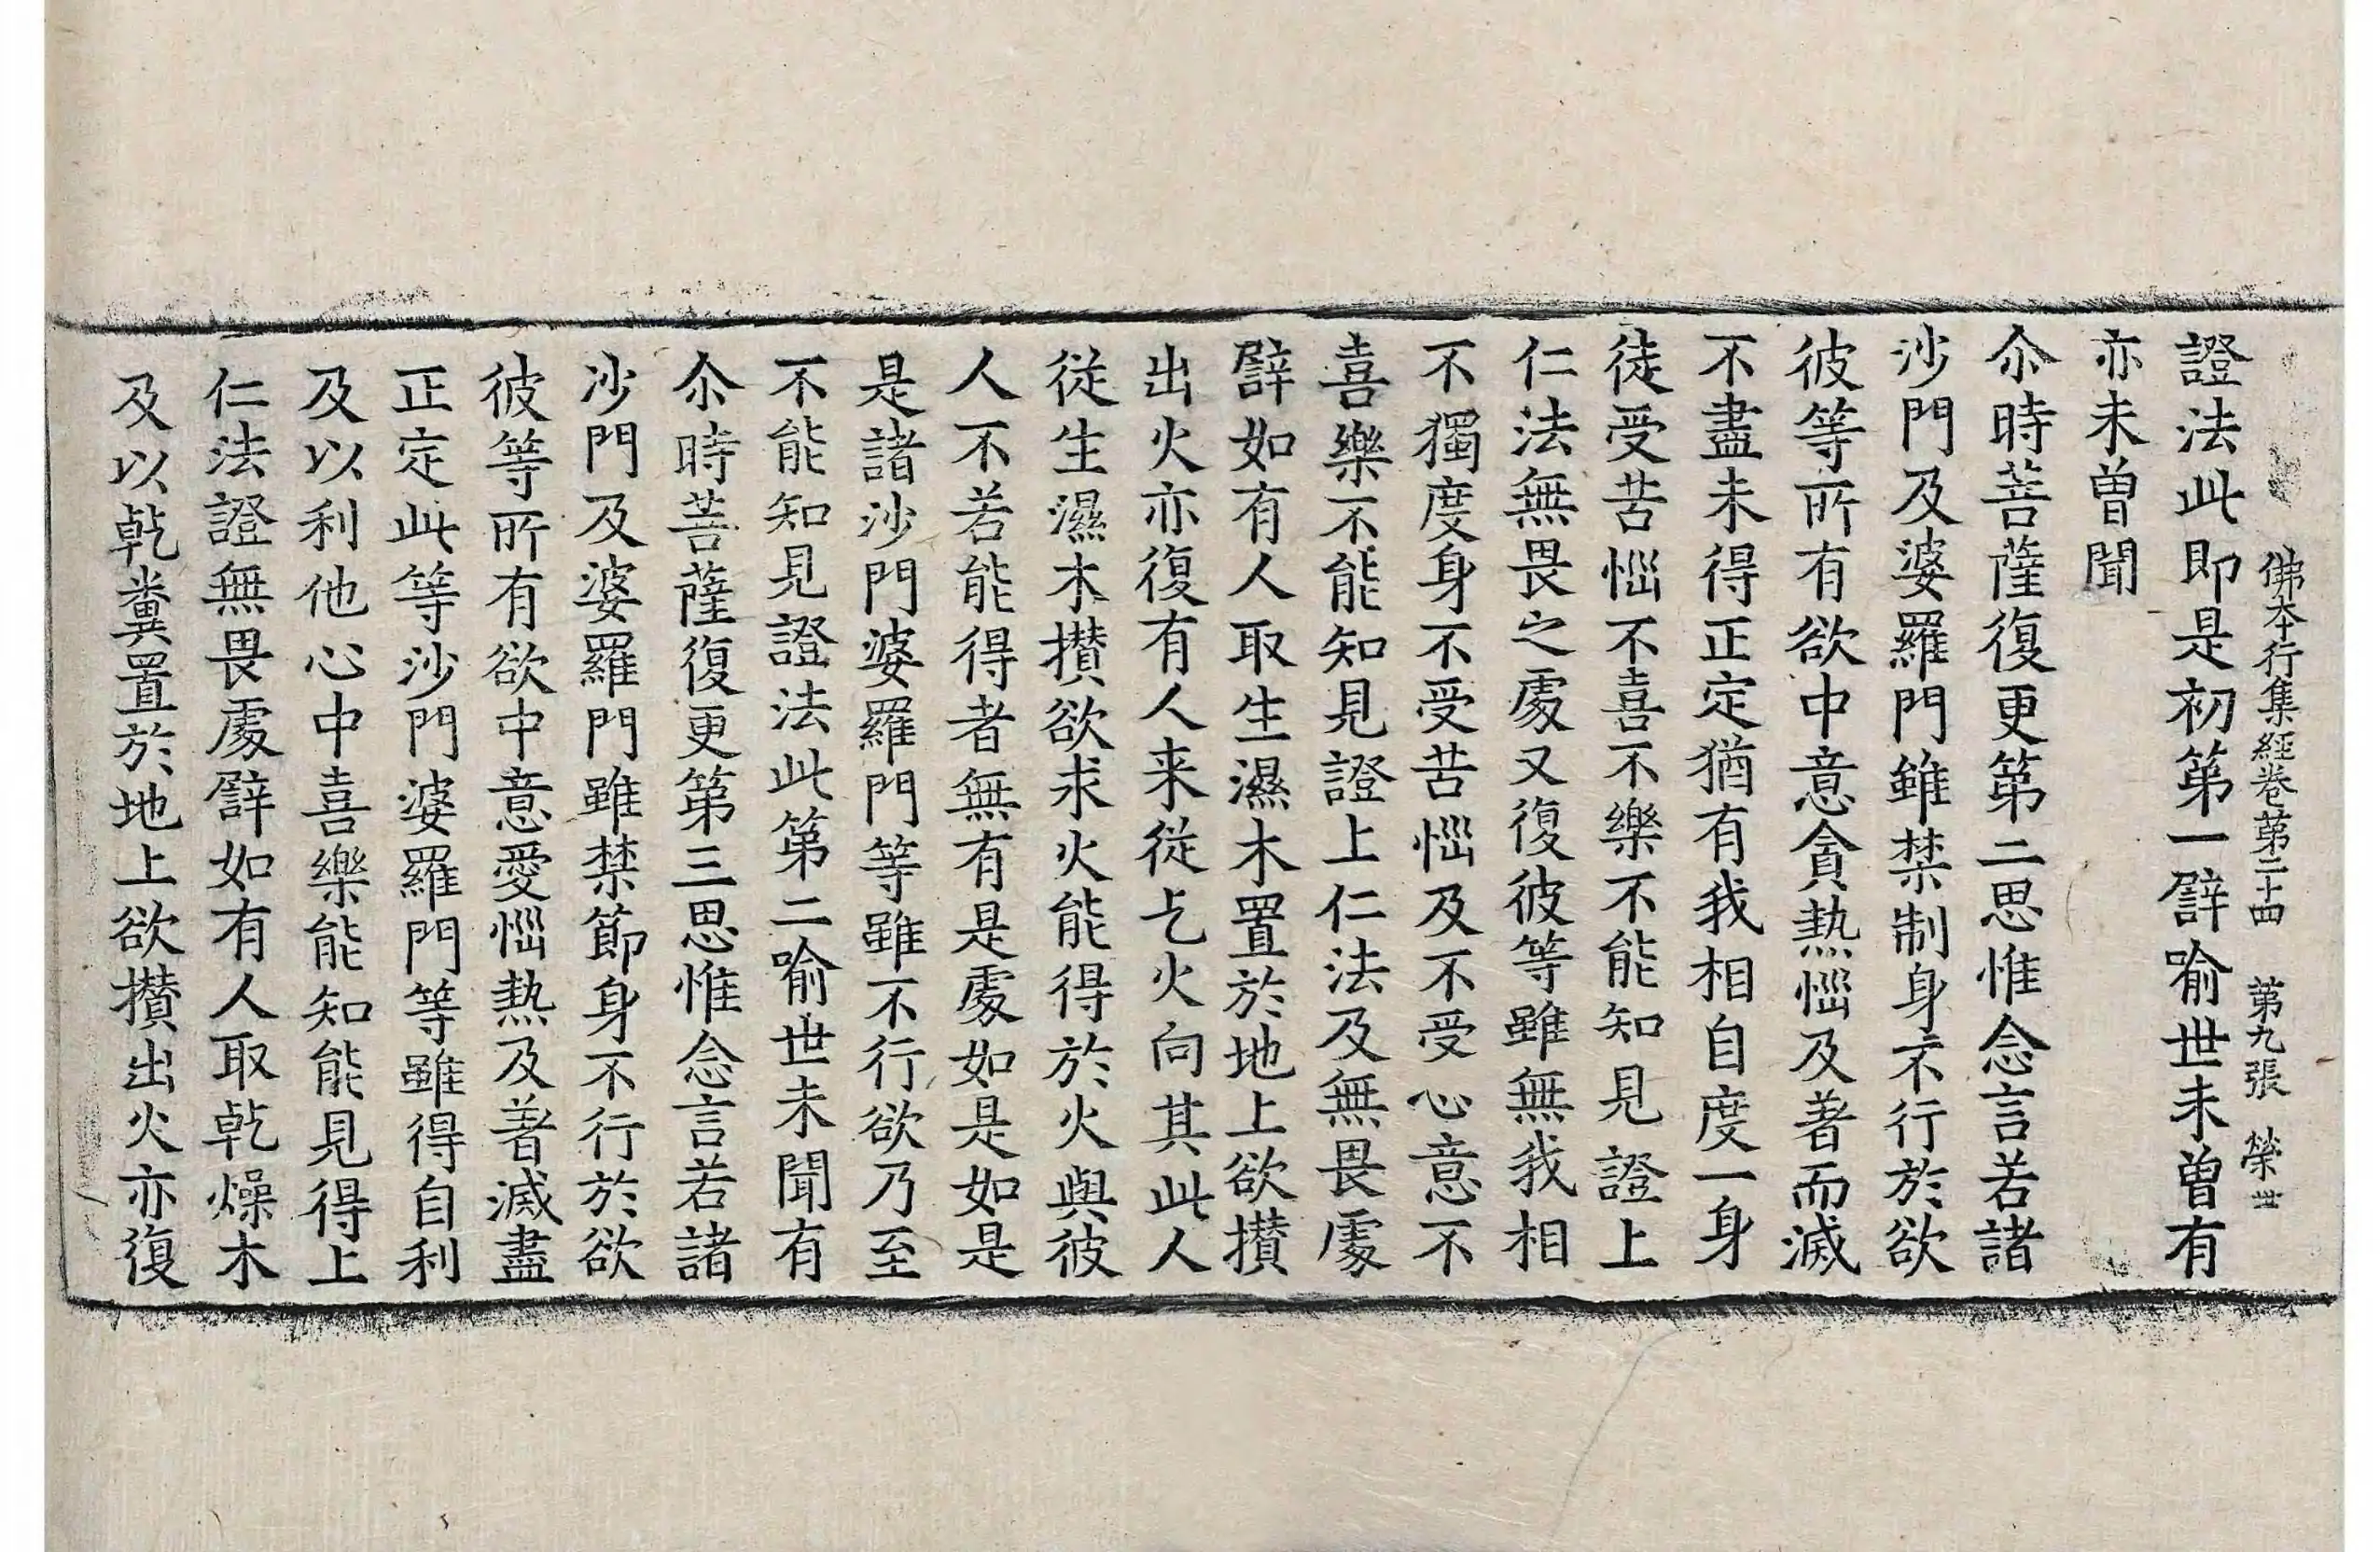 佛本行集經卷第二十四 第九張 榮世
證法此即是初第一譬喻世未曽有
亦未曽聞
尒時菩薩復更第二思惟念言若諸
沙門及婆羅門雖禁制身不行於欲
彼等所有欲中意貪熱惱及著而滅
不盡未得正定猶有我相自度一身
徒受苦惱不喜不樂不能知見證上
仁法無畏之處又復彼等雖無我相
不獨度身不受苦惱及不受心意不
喜樂不能知見證上仁法及無畏處
譬如有人取生濕木置於地上欲攢
出火亦復有人来從乞火向其此人
從生濕木攢欲求火能得於火與彼
人不若能得者無有是處如是如是
是諸沙門婆羅門等雖不行欲乃至
不能知見證法此第二喻世未聞有
尒時菩薩復更第三思惟念言若諸
沙門及婆羅門雖禁節身不行於欲
彼等所有欲中意愛惱熱及著滅盡
正定此等沙門婆羅門等雖得自利
及以利他心中喜樂能知能見得上
仁法證無畏處譬如有人取乾燥木
及以乾糞置於地上欲攢出火亦復